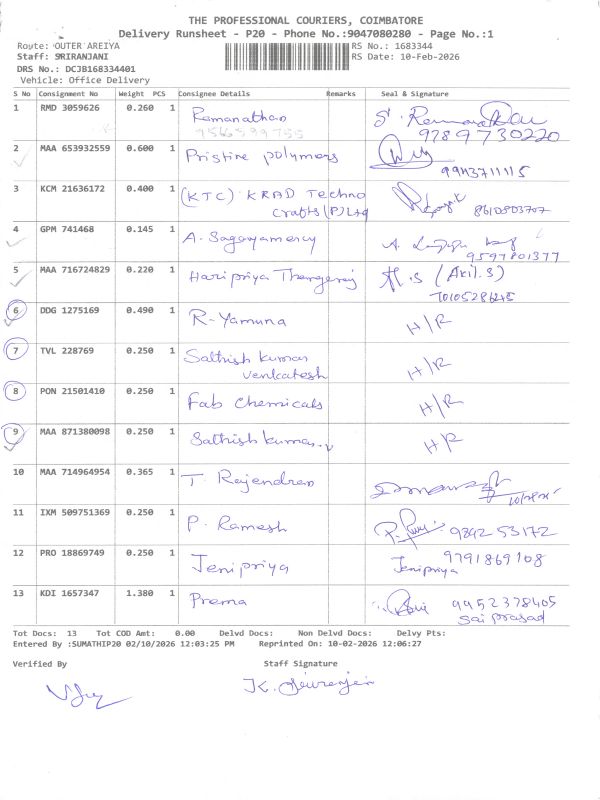 THE PROFESSIONAL COURIERS, COIMBATORE
Delivery Runsheet - P20 - Phone No.:9047080280 - Page No.:1
Route: OUTER AREIYA
RS No.: 1683344
Staff: SRIRANJANI
RS Date: 10-Feb-2026
DRS No.: DCJB168334401
Vehicle: Office Delivery
S No Consignment No Weight PCS Consignee Details Remarks Seal & Signature
1 RMD 3059626 0.260 1 Ramanathan
9789730220
2 MAA 653932559 0.600 1 Pristine polymers
9943711115
3 KCM 21636172 0.400 1 (KTC) KRAD Techno
Crafts (P) Ltd 8610803707
4 GPM 741468 0.145 1 A. Sagayamercy
9597801377
5 MAA 716724829 0.220 1 Haripriya Thangaraj (Akil.S)
6 DDG 1275169 0.490 1 R-Yamuna H/R
7 TVL 228769 0.250 1 Sathish Kumar
Venkatesh H/R
8 PON 21501410 0.250 1 Fab Chemicals H/R
9 MAA 871380098 0.250 1 Sathish kumar.v H/R
10 MAA 714964954 0.365 1 T. Rajendran
11 IXM 509751369 0.250 1 P. Ramesh 9842 53172
12 PRO 18869749 0.250 1 Jenipriya 9791869108
Jenipriya
13 KDI 1657347 1.380 1 Prema 9952378405
Sai prasad
Tot Docs: 13 Tot COD Amt: 0.00 Delvd Docs: Non Delvd Docs: Delvy Pts:
Entered By :SUMATHIP20 02/10/2026 12:03:25 PM Reprinted On: 10-02-2026 12:06:27
Verified By Staff Signature